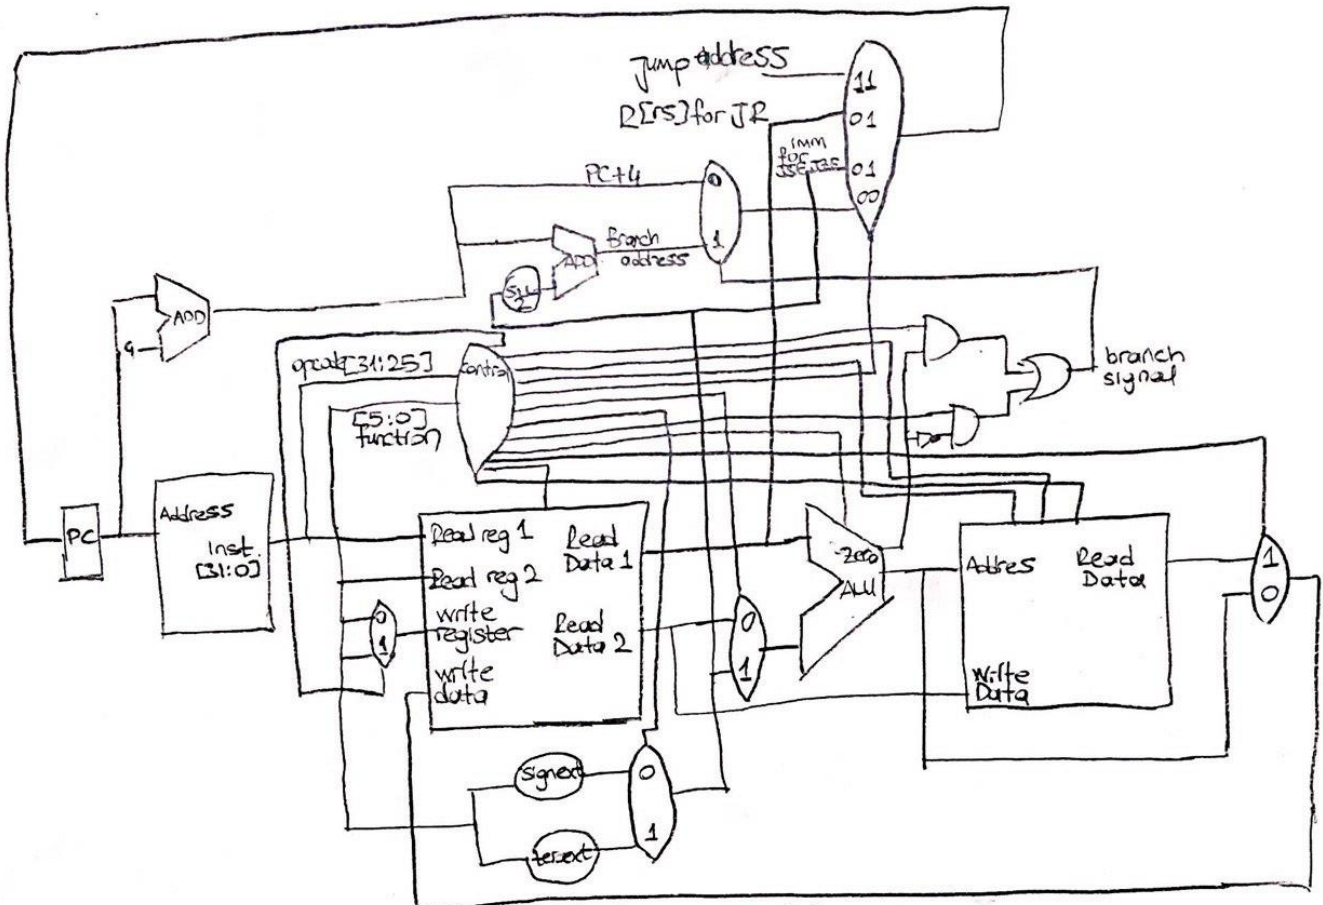 Jump address
11
R[rs] for JR
01
imm
for
01
00
PC+4
0
Branch
address
1
ADD
2
ADD
4
opcode[31:25]
control
[5:0]
function
branch
signal
PC
Address
Inst.
[31:0]
Read reg 1
Read
Data 1
Read reg 2
write
register
Read
Data 2
write
data
0
1
0
1
Zero
ALU
Addres
Read
Data
Write
Data
1
0
signext
0
zeroext
1